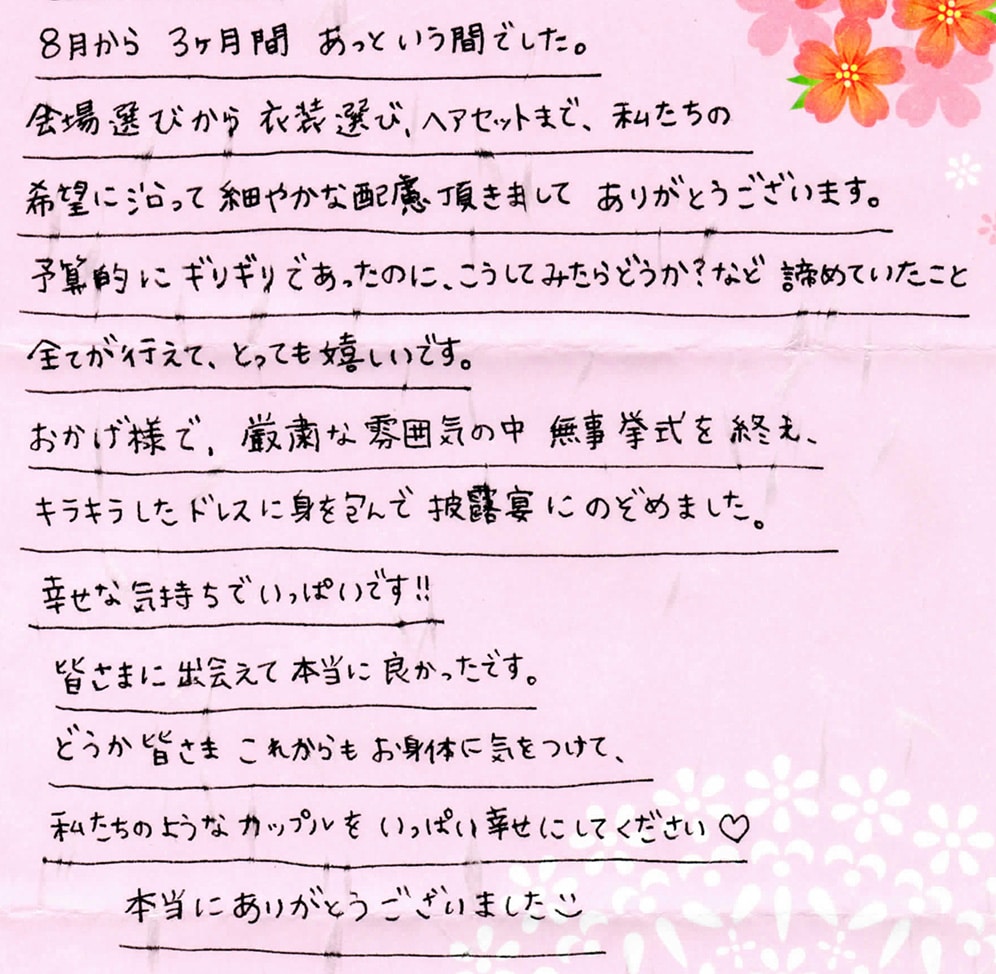 8月から 3ヶ月間 あっという間でした。
会場選びから 衣装選び、ヘアセットまで、私たちの
希望に沿って細やかな配慮頂きまして ありがとうございます。
予算的にギリギリであったのに、こうしてみたらどうか?など 諦めていたこと
全てが行えて、とっても嬉しいです。
おかげ様で、厳粛な雰囲気の中 無事挙式を終え、
キラキラしたドレスに身を包んで 披露宴にのぞめました。
幸せな気持ちでいっぱいです!!
皆さまに出会えて本当に良かったです。
どうか皆さま これからもお身体に気をつけて、
私たちのようなカップルを いっぱい幸せにしてください♡
本当にありがとうございました